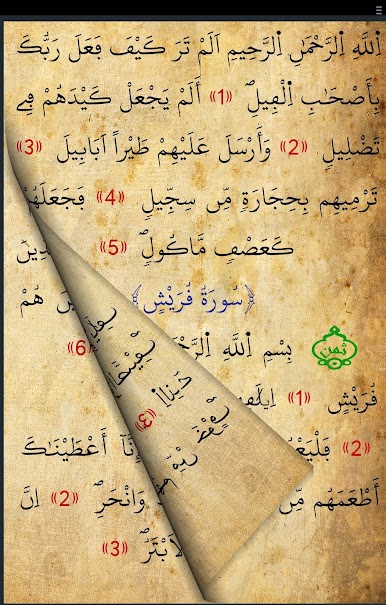 اِ۬للَّهِ اِ۬لرَّحْمَٰنِ اِ۬لرَّحِيمِ اَلَمْ تَرَ كَيْفَ فَعَلَ رَبُّكَ
بِأَصْحَٰبِ اِ۬لْفِيلِ (1) أَلَمْ يَجْعَلْ كَيْدَهُمْ فِے
تَضْلِيلٍ (2) وَأَرْسَلَ عَلَيْهِمْ طَيْراً اَبَابِيلَ (3)
تَرْمِيهِم بِحِجَارَةٍ مِّن سِجِّيلٍ (4) فَجَعَلَهُمْ
كَعَصْفٍ مَّاكُولٍ (5)
سُورَةُ قُرَيْشٍ هُمْ
ثمن بِسْمِ اِ۬للَّهِ (6)
قُرَيْشٍ (1)
(2) إِنَّآ أَعْطَيْنَٰكَ
أَطْعَمَهُم مِّن وَانْحَرِ (2) اِنَّ
اَلَابْتَرُ (3)